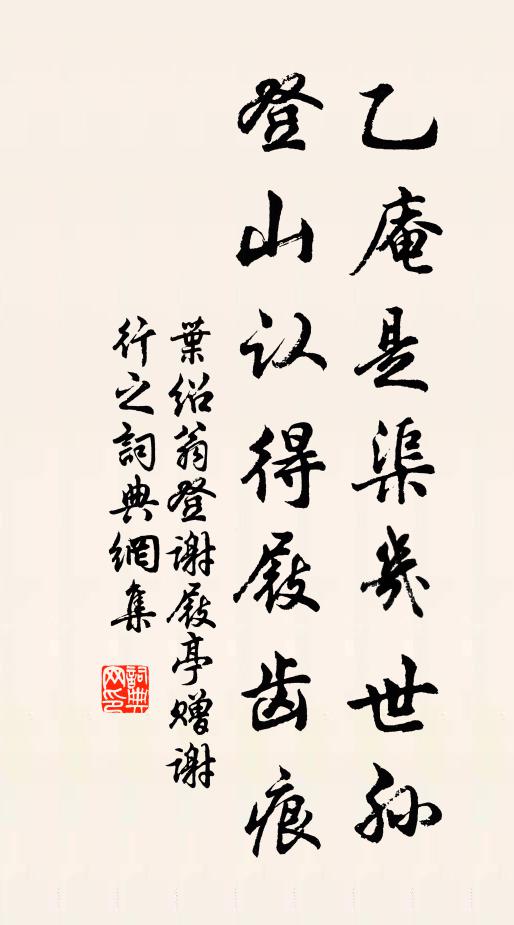 乙庵是渠幾世孙
登山认得屐齿痕
葉绍翁登谢屐亭赠谢
行之詞典網集
詞典網印